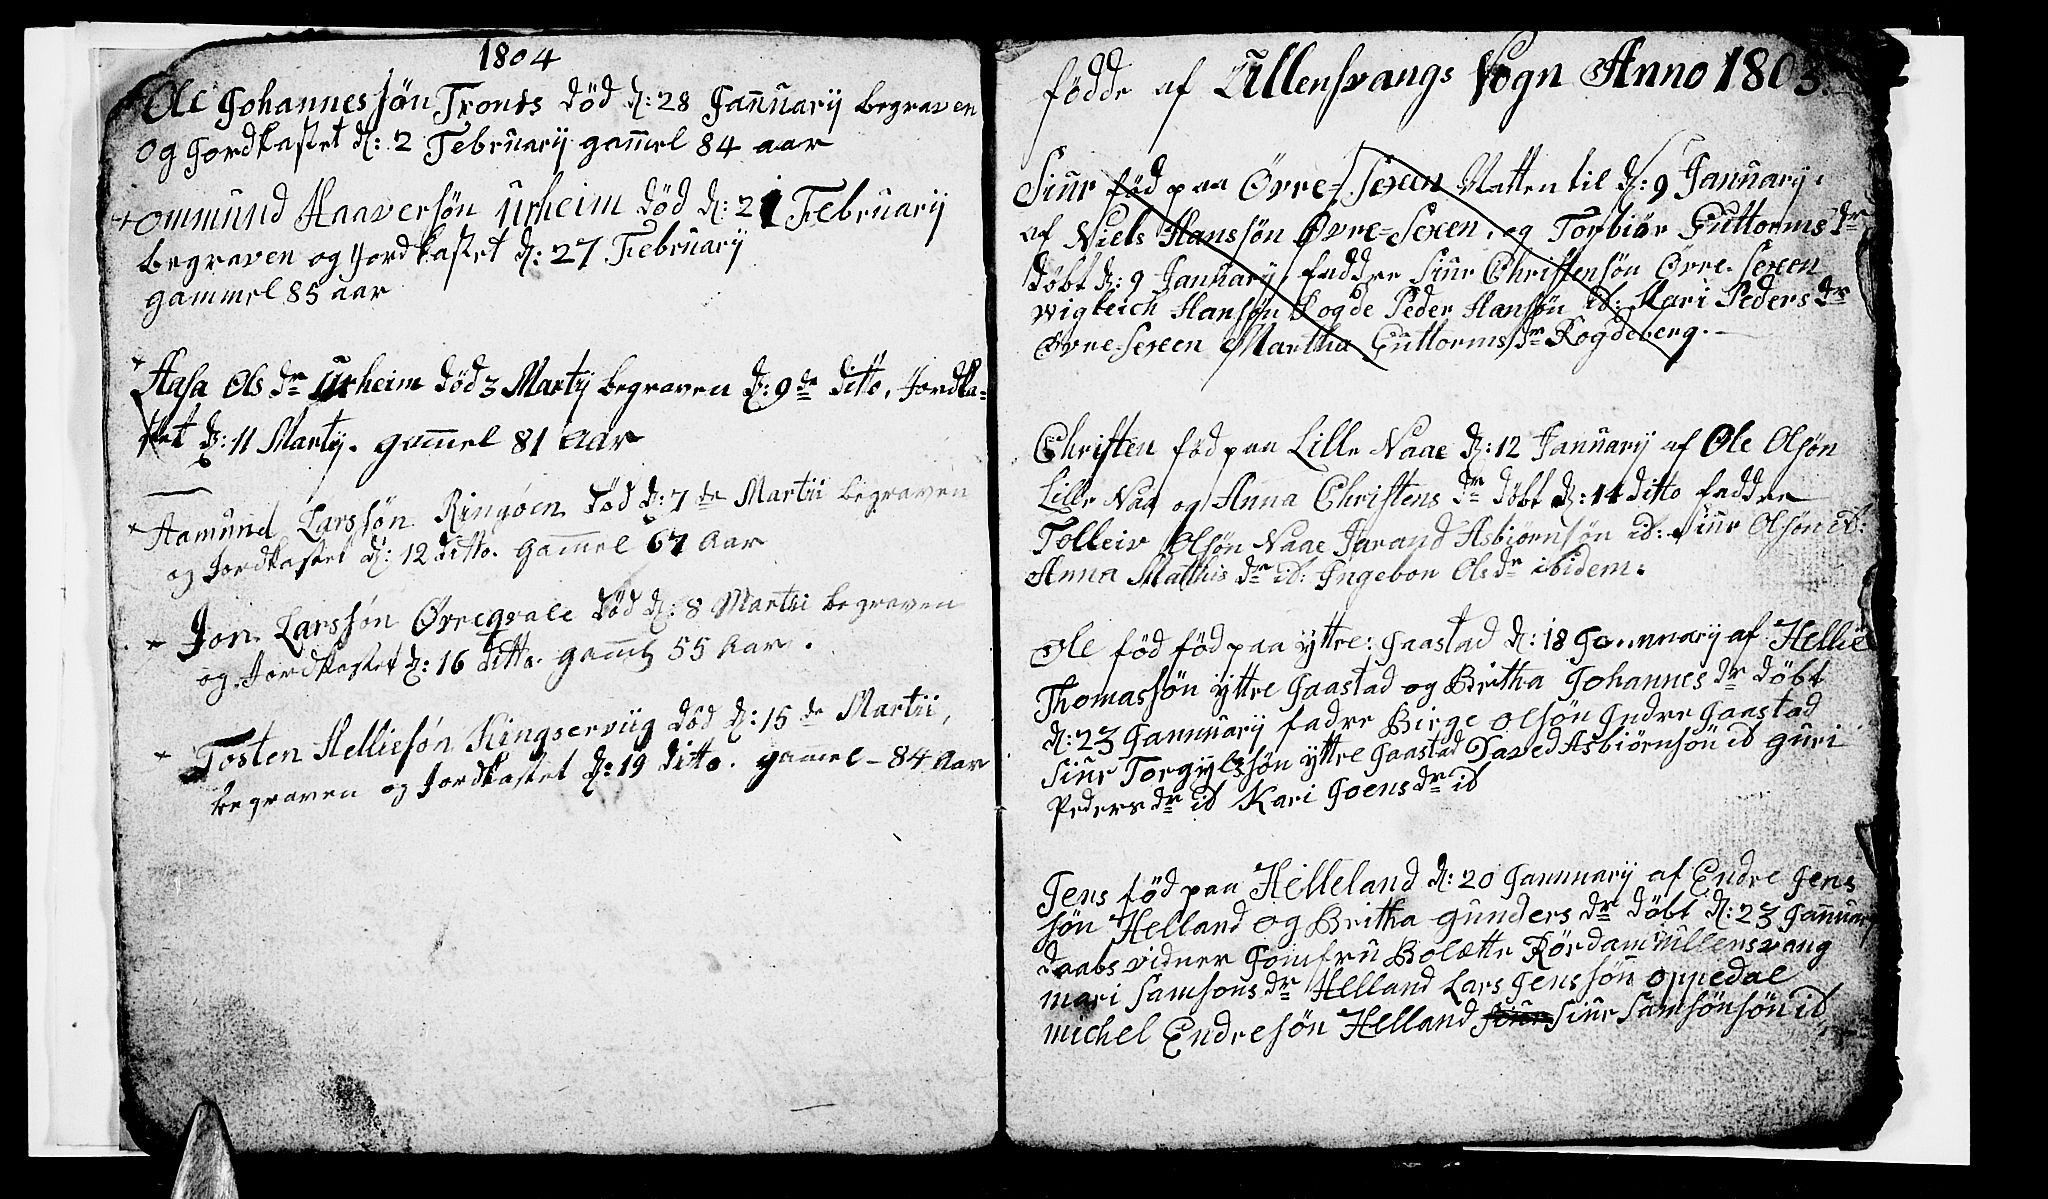 1804
Ole Johannessøn Trones død d: 28 Januarij begraven
og Jordkastet d: 2 Februarij gam̄el 84 aar
+ ommund Haaversøn Urheim død d: 21 Februarij
begraven og Jordkastet d: 27 Februarij
gammel 85 aar
* Aasa Ols dr Urheim død 3 Martij begraven d: 9de ditto, Jordka-
stet d: 11 Martij. gam̄el 81 Aar
* Aamund Larssøn Ringøen død d: 7de Martii begraven
og Jordkastet d: 12 ditto. gam̄el 67 Aar
* Jon Larssøn Øvreqvale død d: 8 Martii begraven
og Jordkastet d: 16 ditto. gam̄el 55 Aar.
* Tosten Helliesøn Kingserviig død d: 15de Martii,
begraven og Jordkastet d: 19 ditto. gam̄el - 84 Aar
fødde af Ullensvangs Sogn Anno 1805.
Siur fød paa Øvre=Sexen Natten til d: 9 Januarij
af Niels Hanssøn Øvre=Sexen, og Torbiør Guttorms dr
døbt d: 9 Januarij faddre Siur Christensøn Øvre Sexen
Wigleich Hansøn Rogde Peder Hansøn ib: Kari Peders dr
Øvre-Sexen Martha Guttorms dr Rogdeberg.
Christen fød paa Lille Naae d: 12 Januarij af Ole Olsøn
Lille Naa og Anna Christens dr døbt d: 14 ditto faddre
Tolleiv Olsøn Naae Jarand Asbiørnsøn ib: Siur Olsøn ib:
Anna Mathis dr ib: Ingebor Ols dr ibidem.
Ole fød fød paa yttre: Jaastad d: 18 Januarij af Hellie
Thomassøn Yttre Jaastad og Britha Johannes dr døbt
d: 23 Januarij fadre Birge olsøn Indre Jaastad
Siur Torgylssøn yttre Jaastad Daved Asbiørnsøn ib guri
Peders dr ib Kari Joens dr ib
Jens fød paa Helleland d: 20 Januarij af Endre Jens
søn Helland og Britha gunders dr døbt d: 23 Januarij
daabs vidner Jomfru Bolætte Rørdam ullensvang
mari Samsons dr Helland Lars Jenssøn oppedal
michel Endresøn Helland Siur Samsønsøn ib